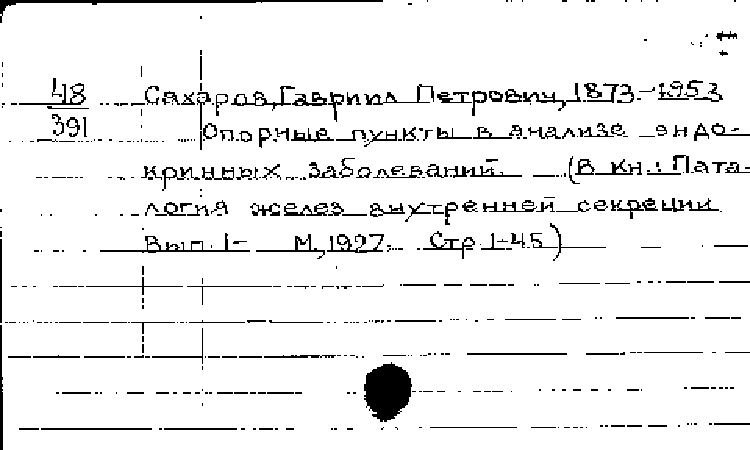 48 Сахаров, Гавриил Петрович, 1873-1953
391 Опорные пункты в анализе эндо-
кринных заболеваний. (В кн.: Пата-
логия желез внутренней секреции
Вып. I- М., 1927. Стр. 1-45)